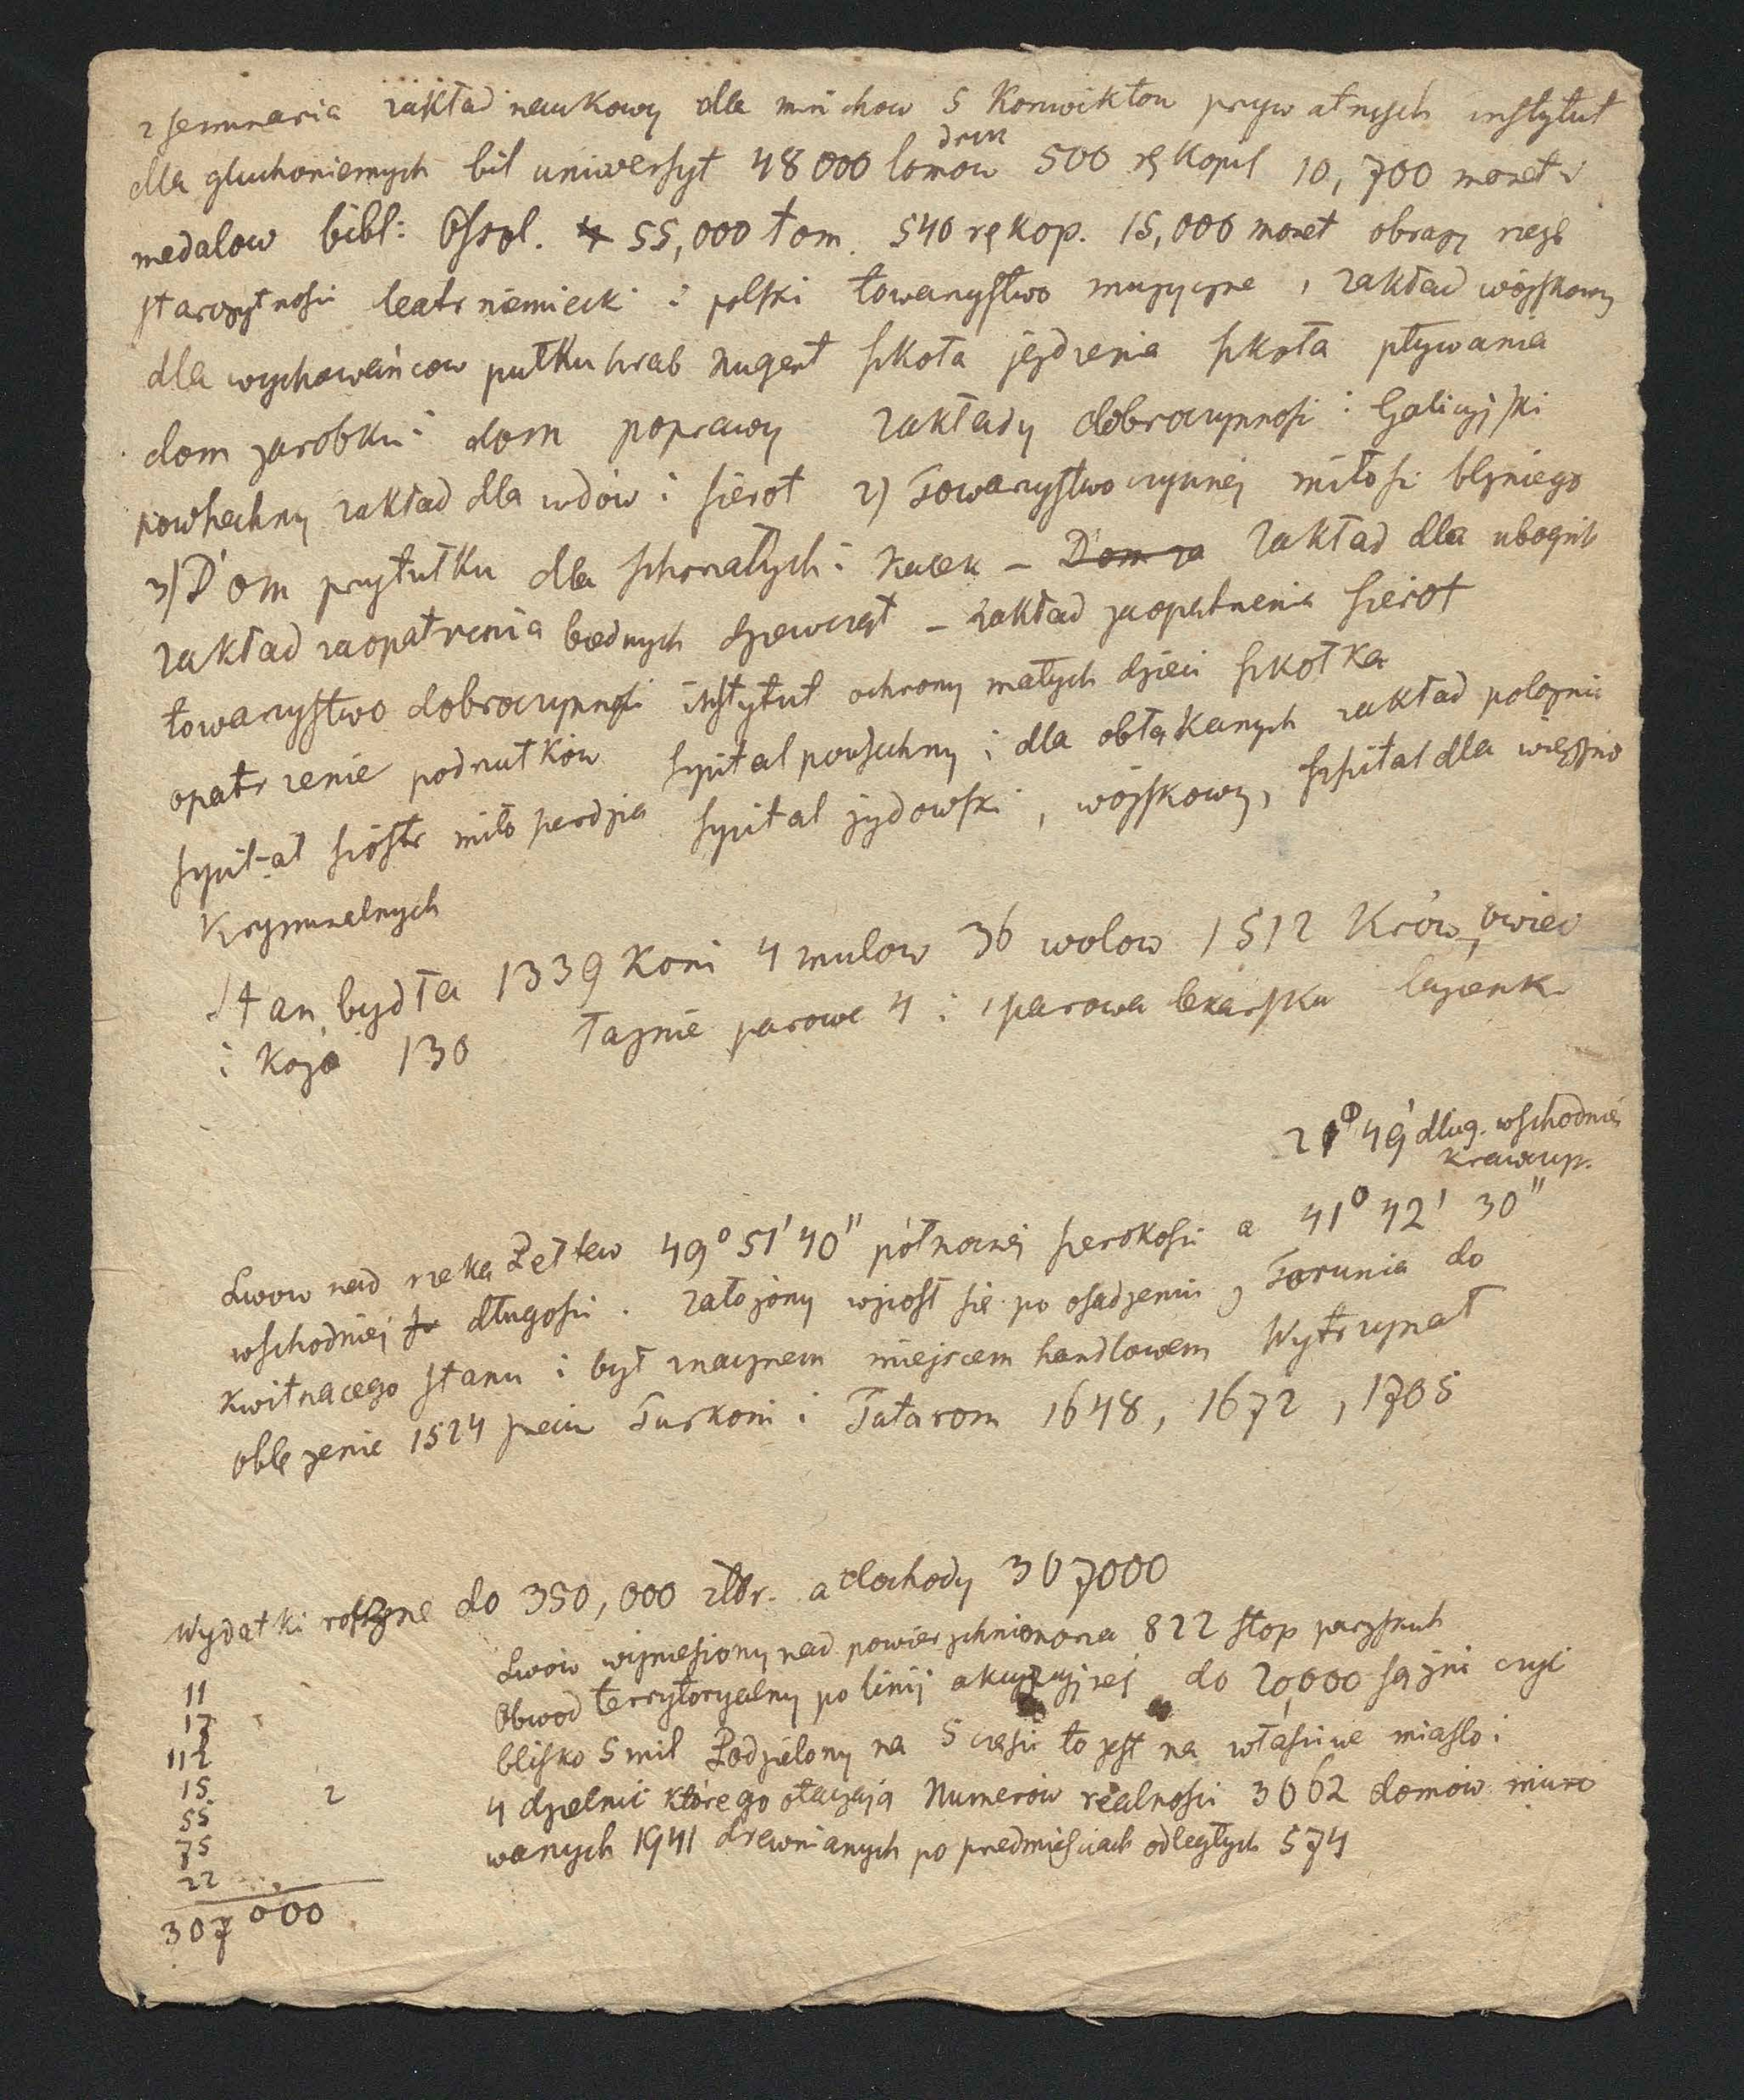 2 seminaria zakład naukowy dla mnichow 5 Konwiktow prywatnych instytut
dla gluchoniemych bil uniwersyt 48000 tomow druk 500 rękopis 10,700 monet i
medalow bibl: Ossol. 55,000 tom. 540 rękop. 15,000 monet obrazy rzeźb
starożytnosci teatr niemiecki i polski towarzystwo muzyczne, zakład wojskowy
dla wychowańcow pułku hrab Nugent szkoła jezdzenia szkoła pływania
dom zarobku i dom poprawy zakłady dobroczynnosci: Galicyjski
powszechny zakład dla wdów i sierot 2) Towarzystwo czynnej miłosci blizniego
3) Dom przytułku dla schorzałych i kalek – Dom za Zakład dla ubogich
zakład zaopatrzenia biednych dziewcząt – zakład zaopatrzenia sierot
towarzystwo dobroczynnosci instytut ochrony małych dzieci szkołka
opatrzenie podrzutków szpital powszechny i dla obłąkanych zakład polożnic
szpital sióstr miłosierdzia szpital żydowski, wójskowy, szpital dla więźnio
Kryminalnych
Stan bydła 1339 Koni 4 mulow 36 wolow 1512 Krów, owiec
i Kóz 130 łaźnie parowe 4 i 1 parowa lekarska łazienk
21° 49' dług. wschodniej
Lwow nad rzeką Pełtew 49° 51' 40" północnej szerokosci a 41° 42' 30"
wschodniej długosci. założony wzniosł się po osadzeniu z Torunia do
kwitnacego stanu i był znacznem miejscem handlowem Wytrzymał
oblężenie 1524 przeciw Turkom i Tatarom 1648, 1672, 1705
Wydatki roczne do 350,000 złr. a dochody 307000
Lwów wzniesiony nad powierzchnią morza 822 stop paryskich
Obwod terrytoryalny po linij akcyzyjnej do 20,000 sążni czyli
blisko 5 mil Podzielony na 5 części to jest na własciwe miasto i
4 dzielnic którego otaczają Numerów realności 3062 domów muro
wanych 1941 drewnianych po przedmieściach odległych 574
11
17
112
15
2
55
75
22
307 000